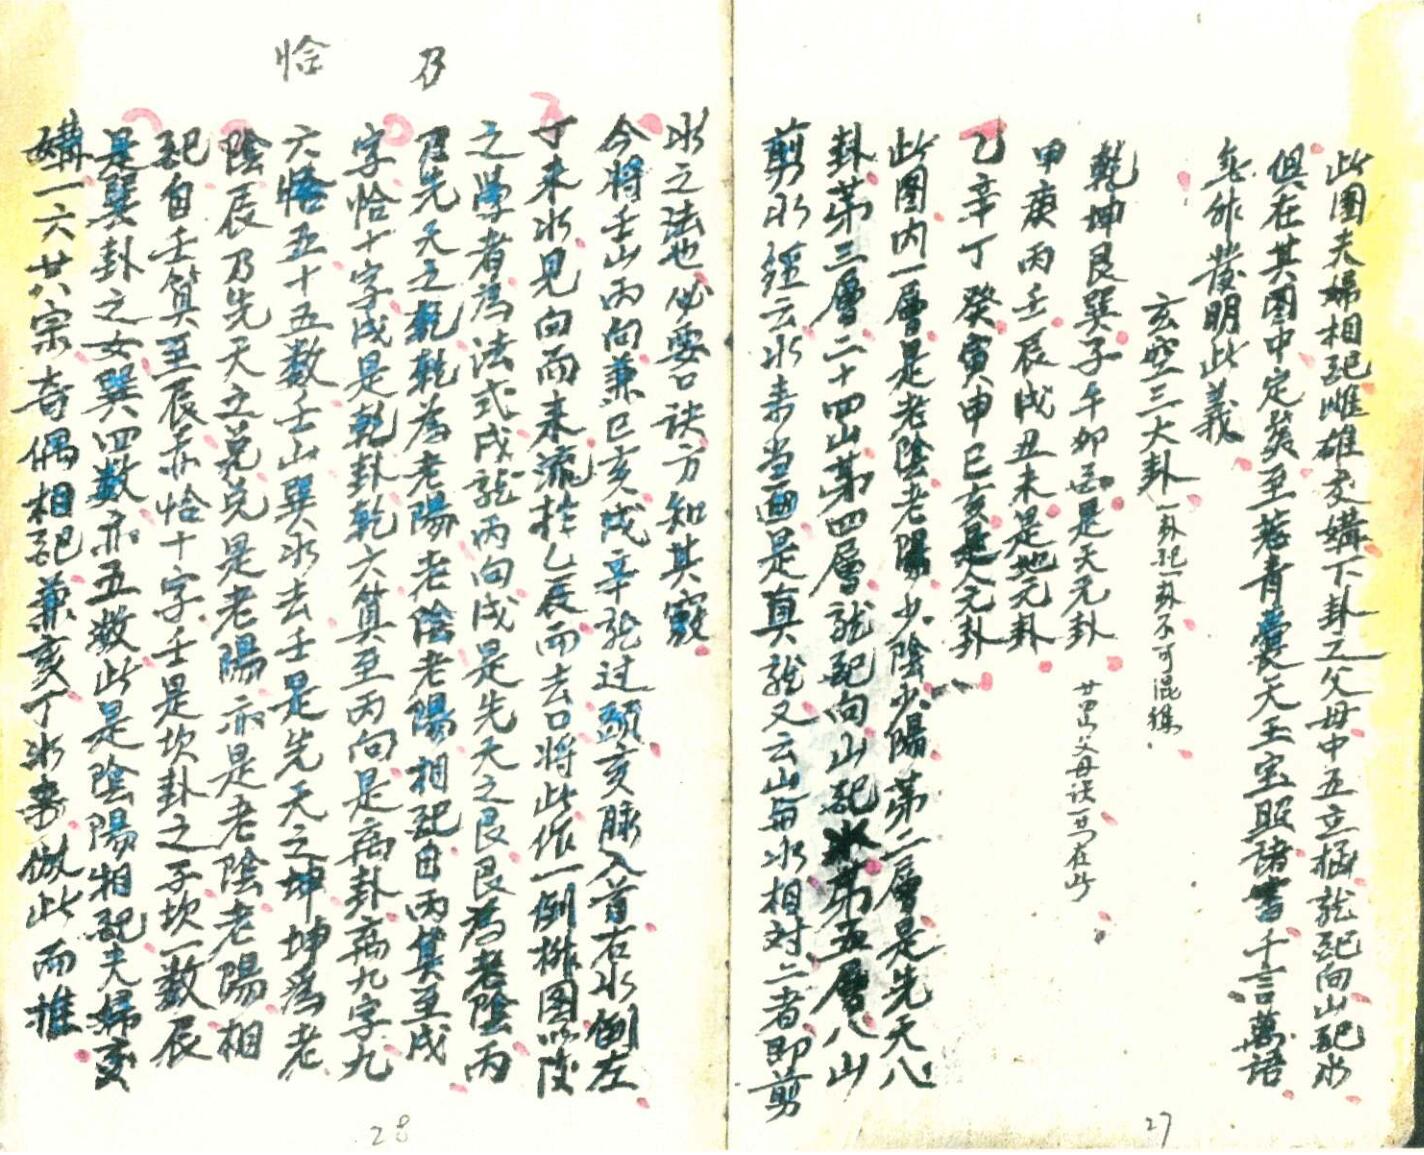 此图夫婦相配雌雄交媾下卦之父母中五立極龍配向山配水
俱在其图中定矣至若青囊天玉宝照諸書千言萬語
無非發明此義
玄空三大卦 一卦配一卦不可混雜
乾坤艮巽子午卯酉是天元卦 廿四山父母訣一為在此
甲庚丙壬辰戌丑未是地元卦
乙辛丁癸寅申巳亥是人元卦
此图内一層是老陰老陽少陰少陽第二層是先天八
卦第三層二十四山第四層龍配向山配水第五層八山
剪水經云水来当面是真龍又云山與水相对二者即剪
27
水之法也必要口訣方知其竅
今将壬山丙向兼巳亥戌辛龍过頭亥脉入首右水倒左
丁未水見向而来流拴乙辰而去口将此作一例挨图以後
之学者為法式戌龍丙向戌是先天之艮艮為老陰丙
乃先天之乾乾為老陽老陰老陽相配自丙算至戌
字恰十字戌是乾卦乾六算至丙向是离卦离九字九
六恰五十五数壬山巽水去壬是先天之坤坤為老
陰辰乃先天之兑兑是老陽亦是老陰老陽相
配自壬算至辰亦恰十字壬是坎卦之子坎一数辰
是巽卦之女巽四数亦五数此是陰陽相配夫婦交
媾一六共宗奇偶相配兼亥丁水来倣此而推
乃
恰
28